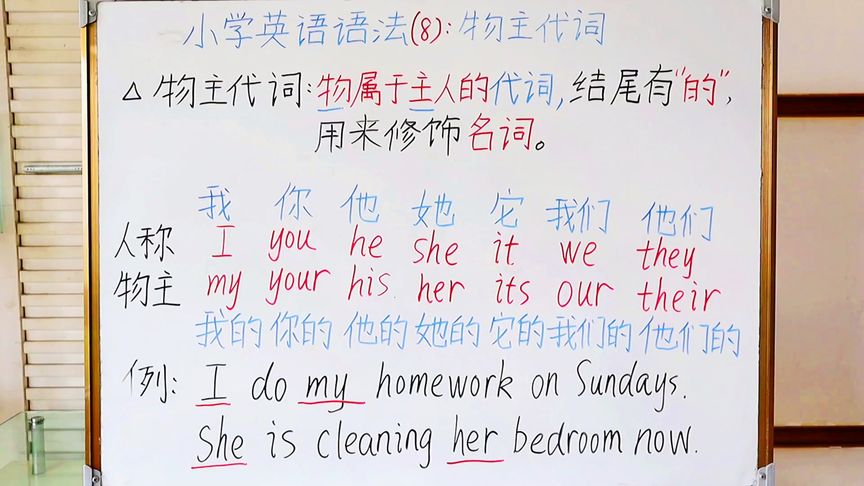 小学英语语法(8):物主代词
△ 物主代词:物属于主人的代词,结尾有"的",
用来修饰名词。
我 你 他 她 它 我们 他们
人称 I you he she it we they
物主 my your his her its our their
我的 你的 他的 她的 它的 我们的 他们的
例: I do my homework on Sundays.
She is cleaning her bedroom now.